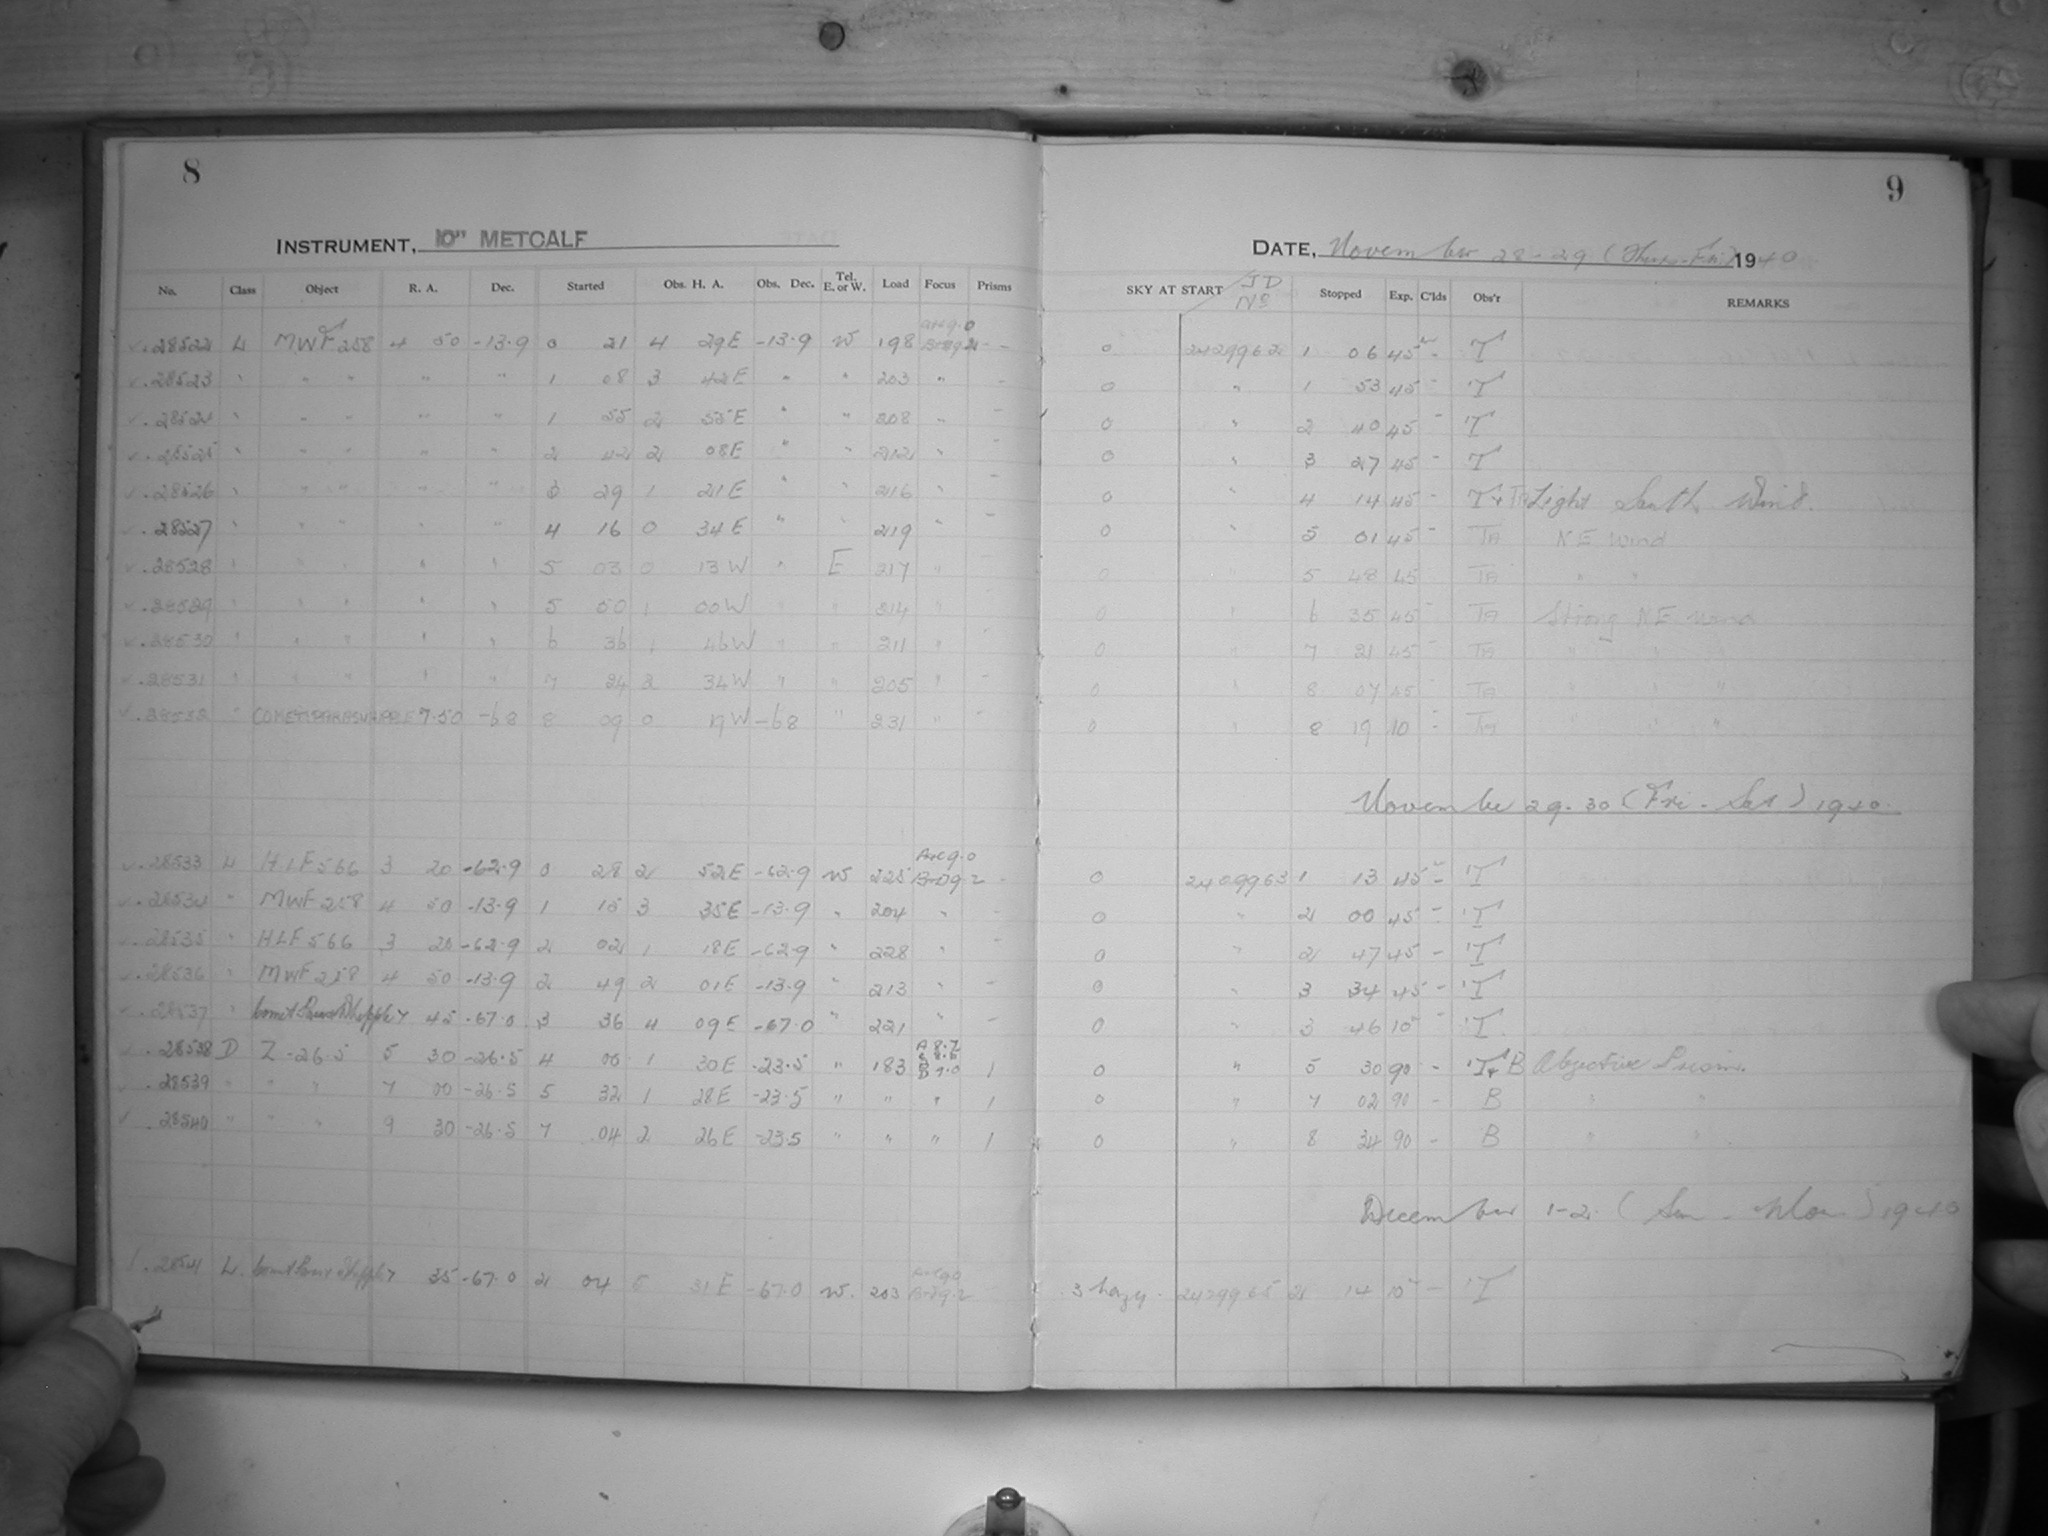 8
INSTRUMENT, 10" METCALF
No. Class Object R. A. Dec. Started Obs. H. A. Obs. Dec. Tel. E. or W. Load Focus Prisms
28522 L MWF 258 4 50 -13.9 0 21 4 29E -13.9 W 198
28523 " " " " " 1 08 3 42E " " 203 " -
28524 " " " " " 1 55 2 55E " " 208 " -
28525 " " " " " 2 42 2 08E " " 212 " -
28526 " " " " " 3 29 1 21E " " 216 " -
28527 " " " " " 4 16 0 34E " " 219 " -
28528 " " " " " 5 03 0 13W " E 217 " -
28529 " " " " " 5 50 1 00W " " 214 " -
28530 " " " " " 6 36 1 46W " " 211 " -
28531 " " " " " 7 24 2 34W " " 205 " -
28532 " COMET 7.50 -68 8 09 0 17W -68 " 231 " -
28533 L HLF 566 3 20 -62.9 0 28 2 52E -62.9 W 225 -
28534 " MWF 258 4 50 -13.9 1 15 3 35E -13.9 " 204 " -
28535 " HLF 566 3 20 -62.9 2 02 1 18E -62.9 " 228 " -
28536 " MWF 258 4 50 -13.9 2 49 2 01E -13.9 " 213 " -
28537 " Comet 7 45 -67.0 3 36 4 09E -67.0 " 221 " -
28538 D Z -26.5 5 30 -26.5 4 00 1 30E -23.5 " 183 1
28539 " " " 7 00 -26.5 5 32 1 28E -23.5 " " " 1
28540 " " " 9 30 -26.5 7 04 2 26E -23.5 " " " 1
28541 L. Comet 7 35 -67.0 2 04 5 31E -67.0 W. 203
9
DATE, November 28-29 (Thur-Fri) 1940
SKY AT START JD No Stopped Exp. C'lds Obs'r REMARKS
0 2429962 1 06 45 - T
0 " 1 53 45 - T
0 " 2 40 45 - T
0 " 3 27 45 - T
0 " 4 14 45 - T+TA Light South Wind.
0 " 5 01 45 - TA NE wind
0 " 5 48 45 TA " "
0 " 6 35 45 - TA Strong NE wind
0 " 7 21 45 - TA " " "
0 " 8 07 45 - TA " " "
0 " 8 19 10 - TA " " "
November 29-30 (Fri-Sat) 1940
0 2429963 1 13 45 - T
0 " 2 00 45 - T
0 " 2 47 45 - T
0 " 3 34 45 - T
0 " 3 46 10 - T
0 " 5 30 90 - T+B Objective Prism.
0 " 7 02 90 - B " "
0 " 8 34 90 - B " "
December 1-2 (Sun-Mon) 1940
3 hazy. 2429965 2 14 10 - T